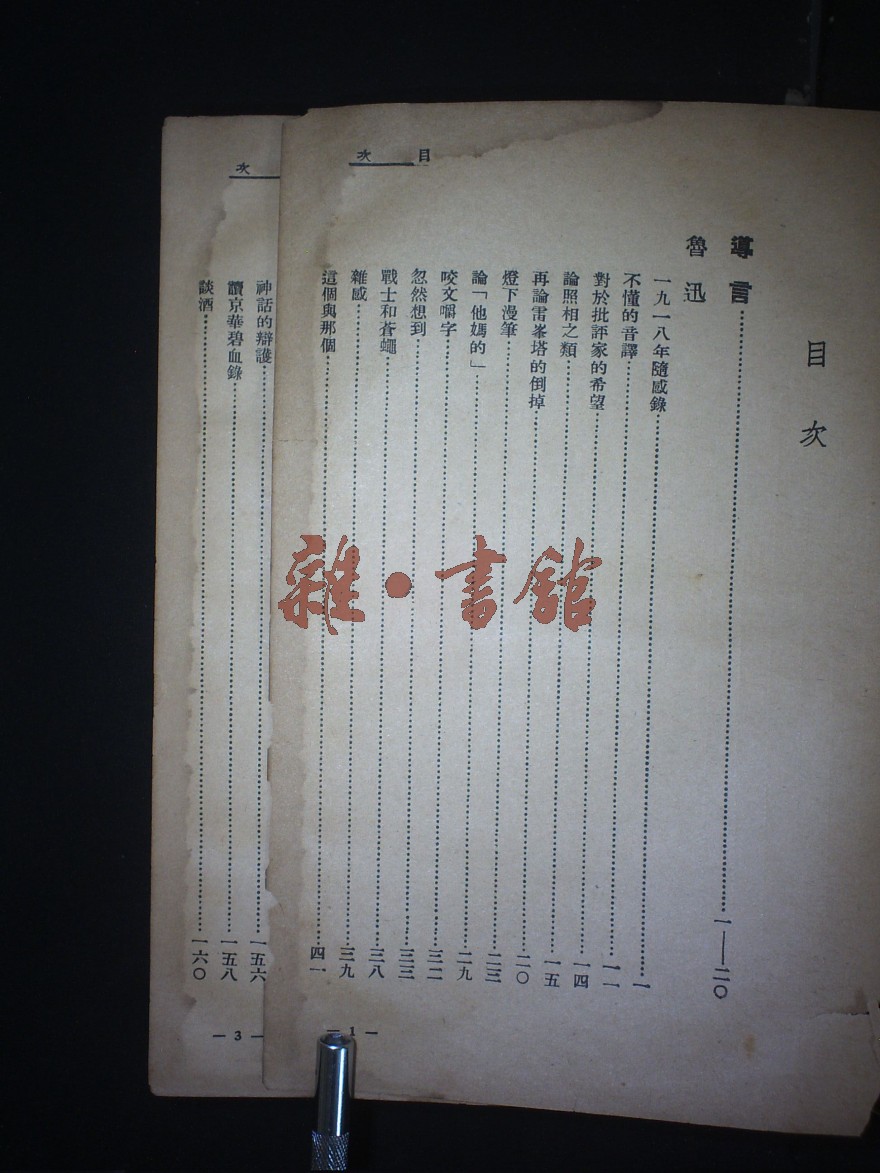 目次
目次
導言……一——二〇
魯迅
一九一八年隨感錄……一
不懂的音譯……一一
對於批評家的希望……一四
論照相之類……一五
再論雷峯塔的倒掉……二〇
燈下漫筆……二三
論「他媽的」……二九
咬文嚼字……三二
忽然想到……三三
戰士和蒼蠅……三八
雜感……三九
這個與那個……四一
— 1 —
次
神話的辯護……一五六
讀京華碧血錄……一五八
談酒……一六〇
— 3 —
雜·書館